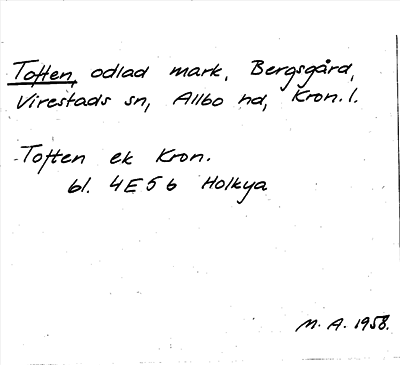 Toften, odlad mark, Bergsgård,
Virestads sn, Allbo hd, Kron. l.
Toften ek Kron.
bl. 4E5b Holkya
M. A. 1958.